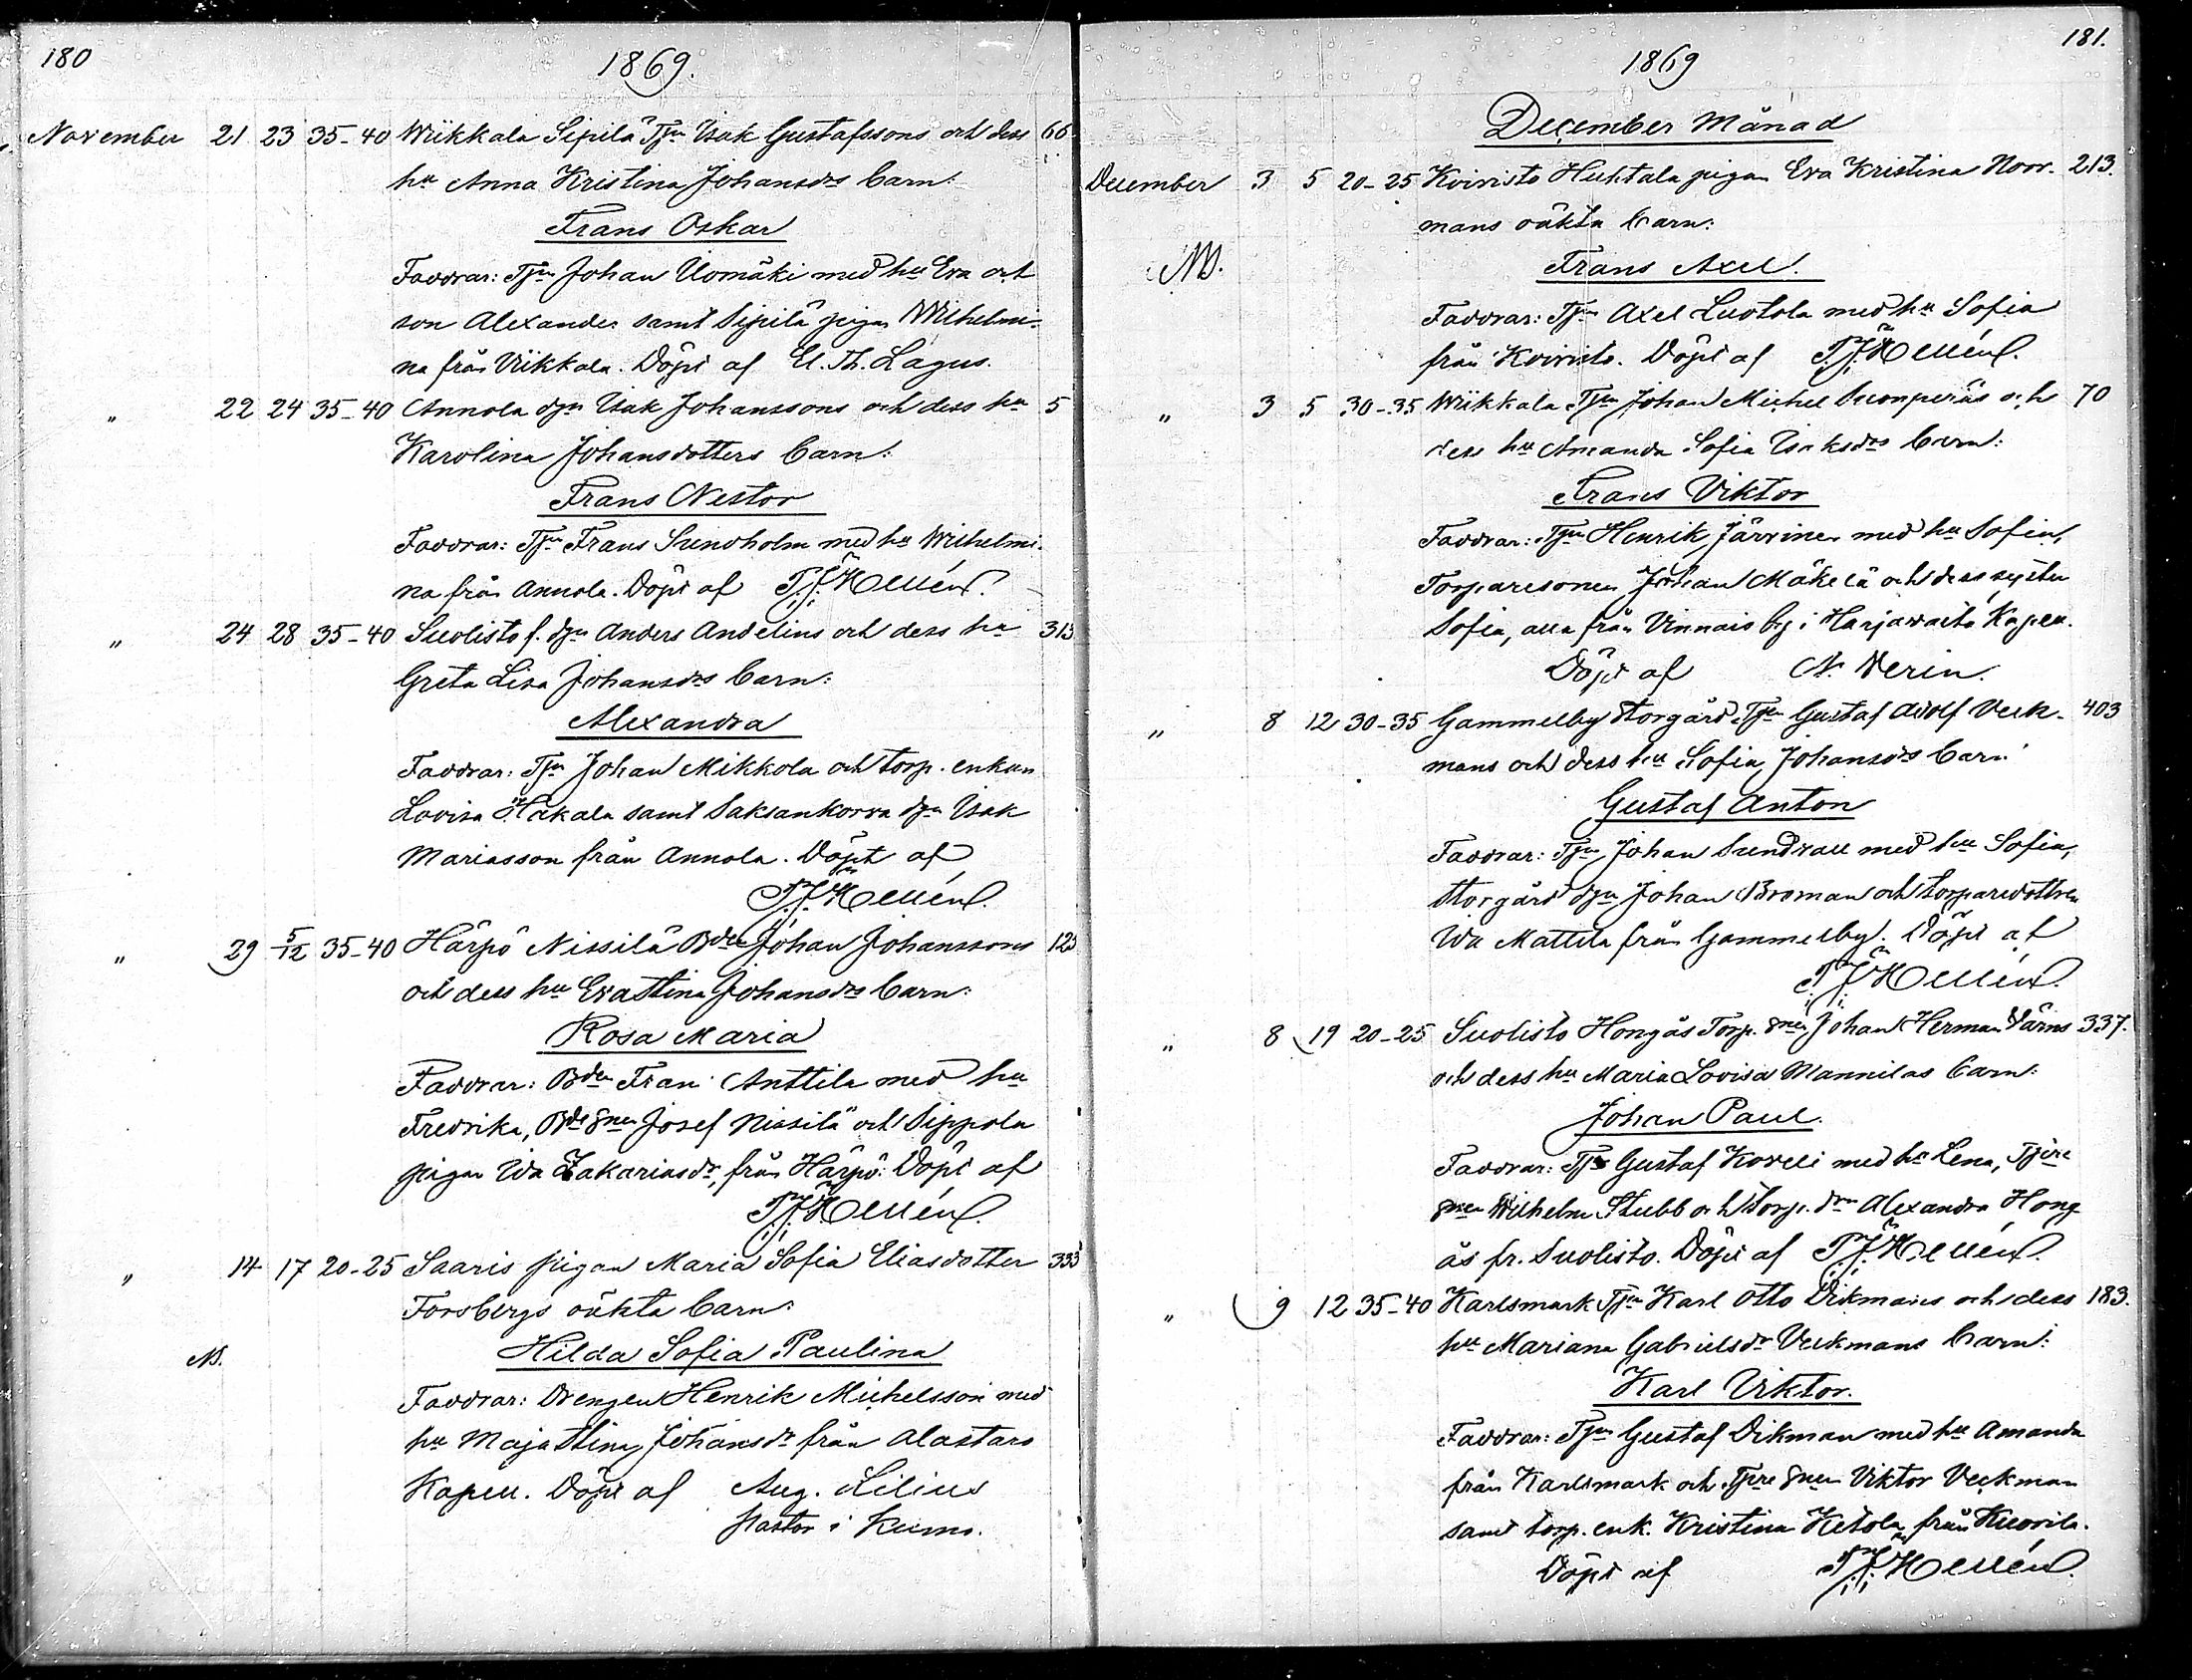 180
1869.
November 21 23 35-40 Wiikkala Sipilä Tjn Isak Gustafssons och dess 66
hu Anna Kristina Johansdrs barn:
Frans Oskar
Faddrar: Tjn Johan Uomäki med hu Eva och
son Alexander samt Sipilä pigan Wilhelmi-
na från Viikkala. Döpt af El. Th. Lagus.
" 22 24 35-40 Annola dgn Isak Johanssons och dess hu 5
Karolina Johansdotters barn:
Frans Nestor
Faddrar: Tjn Frans Sundholm med hu Wilhelmi-
na från Annola. Döpt af T. J. Hellén.
" 24 28 35-40 Suolisto f. dgn Anders Andelins och dess hu 313
Greta Lisa Johansdrs barn:
Alexandra
Faddrar: Tjn Johan Mikkola och torp. enkan
Lovisa Hakala samt Saksankorva dgn Isak
Mariasson från Annola. Döpt af
T. J. Hellén.
" 29 5/12 35-40 Härpö Nissilä Bden Johan Johanssons 123
och dess hu Eva Stina Johansdrs barn:
Rosa Maria
Faddrar: Bden Frans Anttila med hu
Fredrika, Bde snen Josef Nissilä och Sippola
pigan Ida Zakariasdr, från Härpö. Döpt af
T. J. Hellén.
" 14 17 20-25 Saaris pigan Maria Sofia Eliasdotter 333
Forsbergs oäkta barn:
NB. Hilda Sofia Paulina
Faddrar: Drengen Henrik Michelsson med
hu Maja Stina Johansdr från Alastaro
Kapell. Döpt af Aug. Lilius
Pastor i Kumo.
181.
1869
December Månad
December 3 5 20-25 Koivisto Huhtala pigan Eva Kristina Norr- 213.
mans oäkta barn:
NB. Frans Axel.
Faddrar: Tjn Axel Luotola med hu Sofia
från Koivisto. Döpt af T. J. Hellén.
" 3 5 30-35 Wiikkala Tjn Johan Michel Suomperäs och 70
dess hu Amanda Sofia Isaksdrs barn:
Frans Viktor
Faddrar: Tjn Henrik Järvinen med hu Sofia,
Torparesonen Johan Mäkelä och dess syster
Sofia, alla från Vinnais by i Harjavalta Kapell.
Döpt af N. Verin.
" 8 12 30-35 Gammelby Storgård Tjn Gustaf Adolf Veck- 403
mans och dess hu Sofia Johansdrs barn:
Gustaf Anton
Faddrar: Tjn Johan Sundvall med hu Sofia,
Storgård dgn Johan Broman och torparedottren
Ida Mattila från Gammelby. Döpt af
T. J. Hellén.
" 8 19 20-25 Suolisto Hongås Torp. snen Johan Herman Värns 337.
och dess hu Maria Lovisa Mannilas barn:
Johan Paul.
Faddrar: Tjn Gustaf Koveli med hu Lena, Tjre
snen Wilhelm Stubb och Torp. drn Alexandra Hong
ås fr. Suolisto. Döpt af T. J. Hellén.
" 9 12 35-40 Karlsmark Tjn Karl Otto Dikmans och dess 183.
hu Mariana Gabrielsdr Veckmans barn:
Karl Viktor.
Faddrar: Tjn Gustaf Dikman med hu Amanda
från Karlsmark och Tjre snen Viktor Veckman
samt torp. enk. Kristina Ketola från Kuorila.
Döpt af T. J. Hellén.